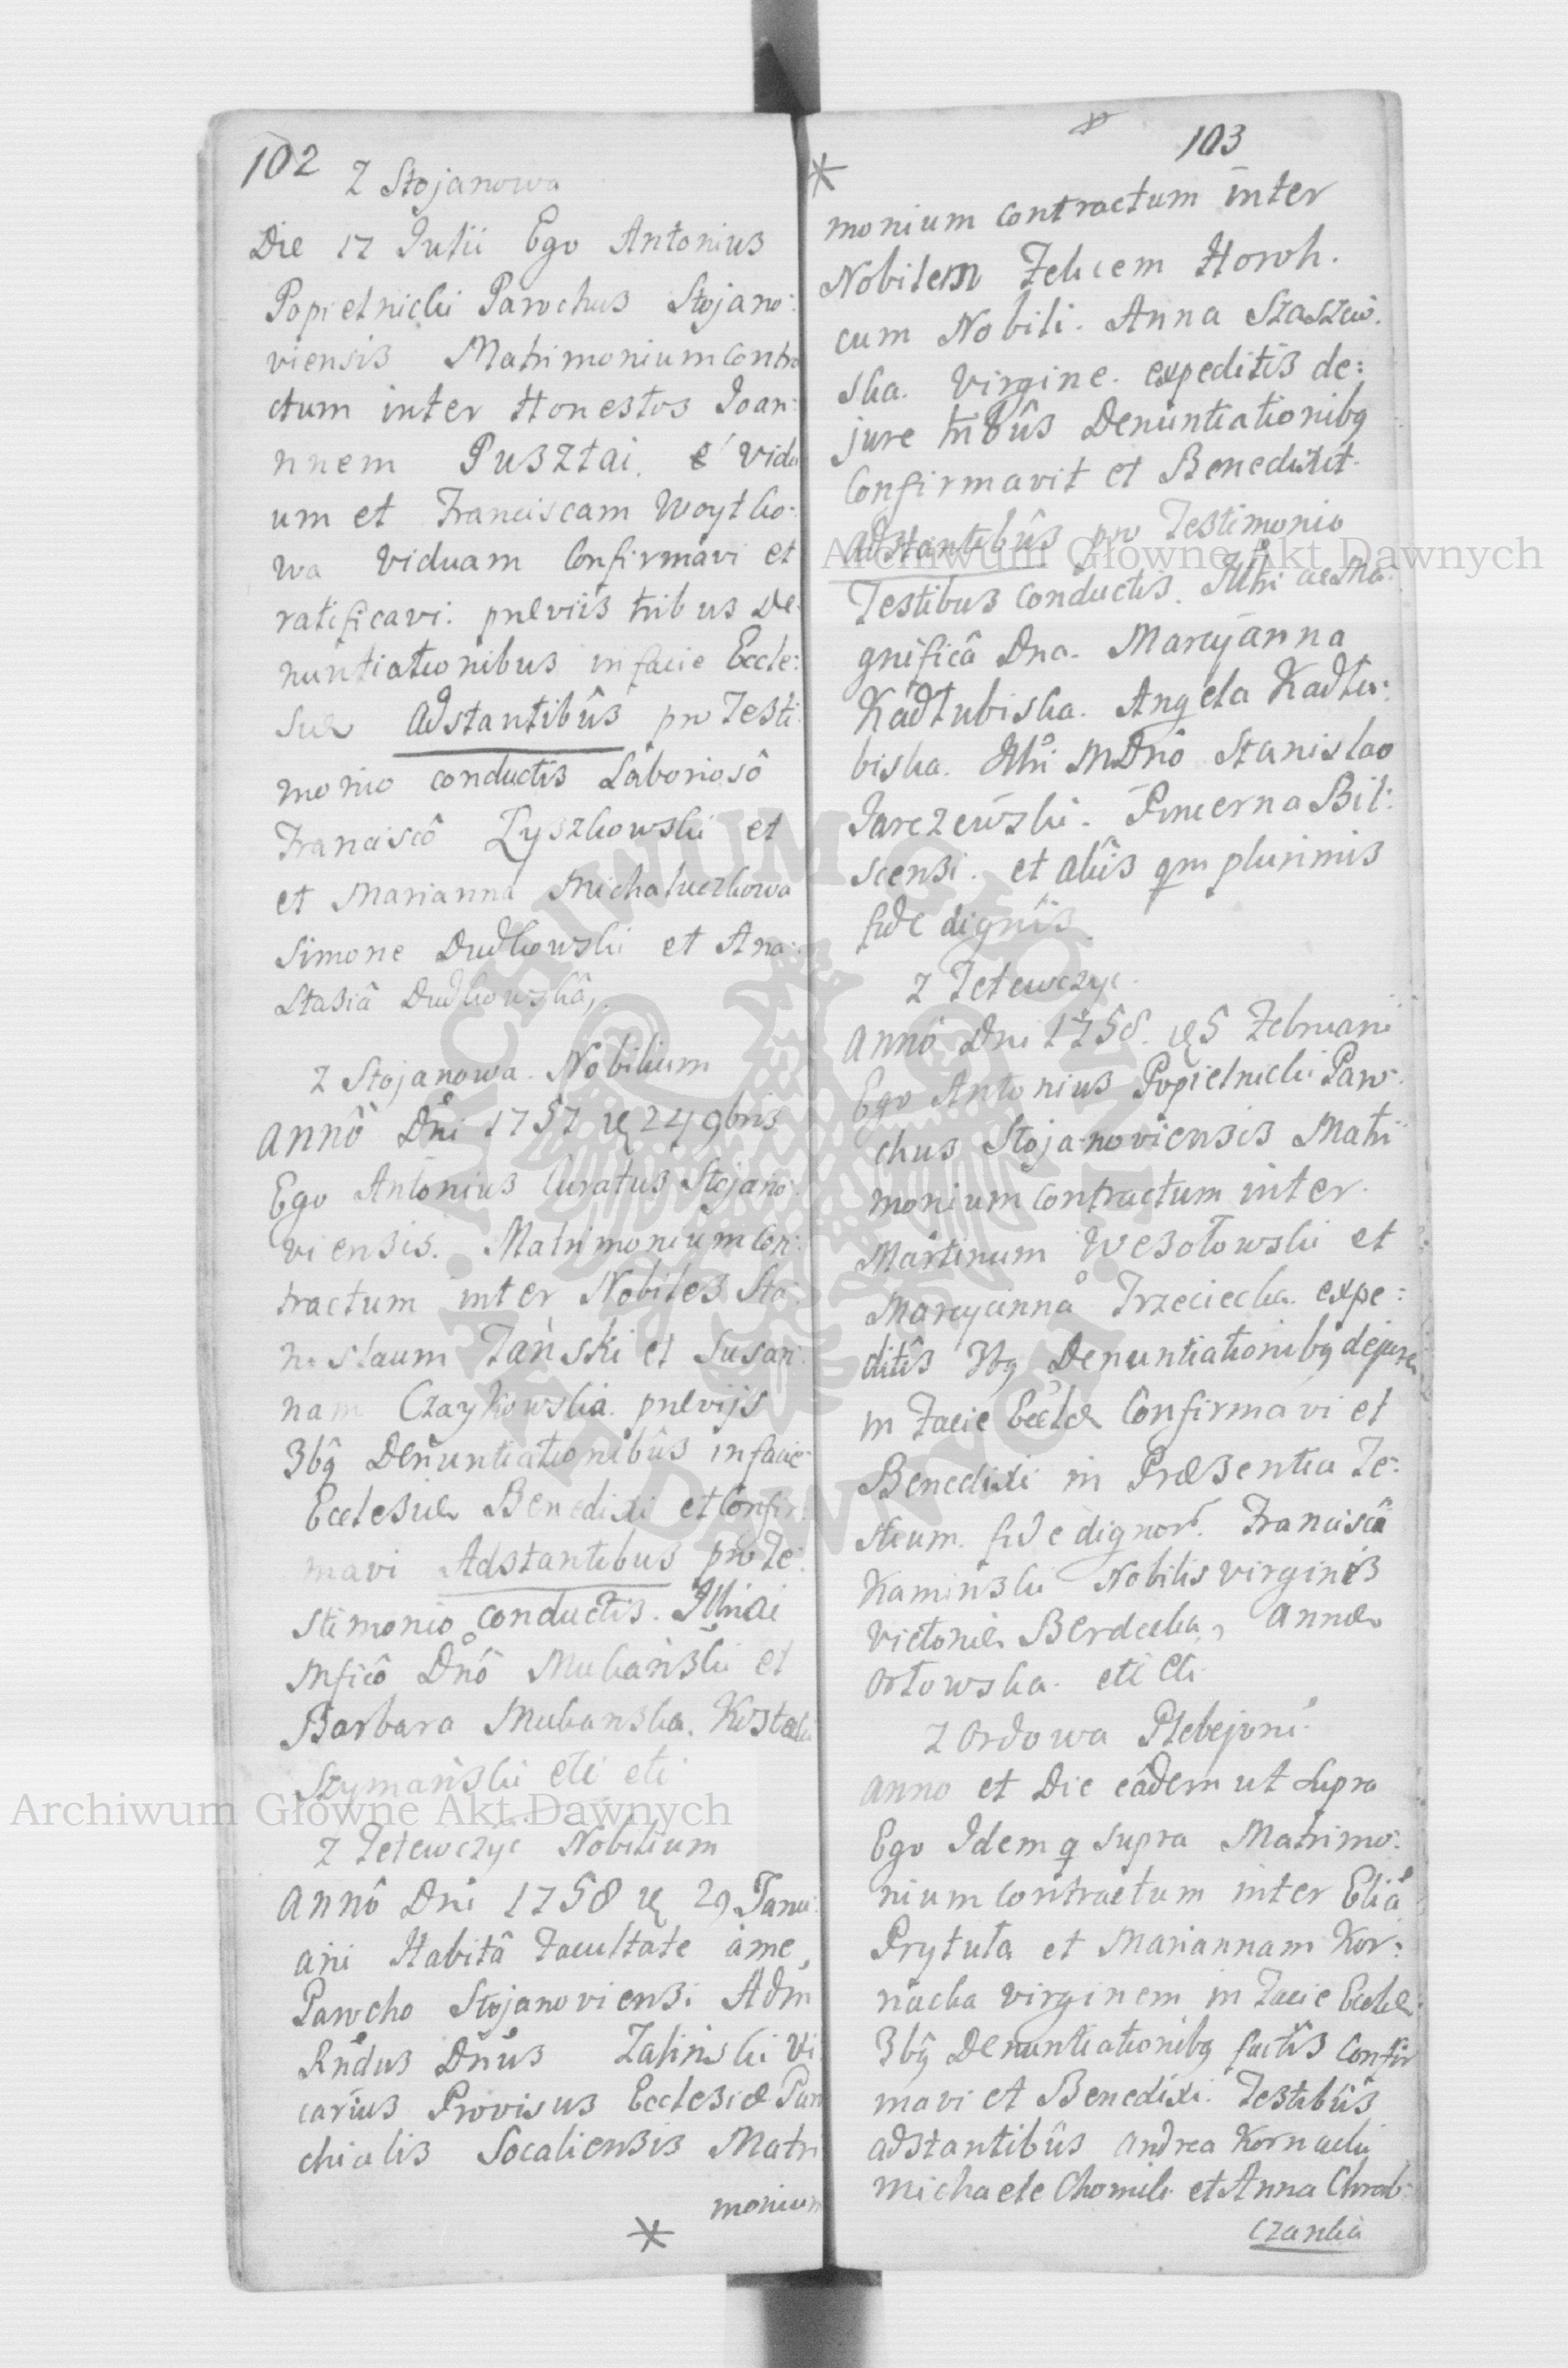 102
Z Stojanowa
Die 17 Julii Ego Antonius
Popielnicki Parochus Stojano:
viensis Matrimonium contra
ctum inter Honestos Joan:
nnem Pusztai. Vidu
um et Franciscam Woytko:
wa viduam Confirmavi et
ratificavi: præviis tribus De:
nuntiationibus in facie Eccle:
siæ Adstantibûs pro Testi:
monio conductis Laboriosô
Franciscô Łyszkowski et
et Marianna Michałuczkowa
Simone Dudkowski et Ana:
stasiâ Dudkowskâ,.
Z Stojanowa. Nobilium
Annô Dni 1757 24 9bris
Ego Antonius Curatus Stojano:
viensis. Matrimonium Con:
tractum inter Nobiles Sta:
nislaum Tański et Susan:
nam Czaykowska. prævijs
3bq Denuntiationibûs in facie
Ecclesiæ Benedixi et Confir:
mavi Adstantibus pro Te:
stimonio conductis. Illri ac
Mficô Dnô Mukański et
Barbara Mukanska.
Szymański etc etc
Z Tetewczyc Nobilium
Annô Dni 1758 29 Janu:
arii Habitâ Facultate à me
Parocho Stojanoviensi Adm
Rndus Dnus Zaliński Vi
carius Provisus Ecclesiæ Paro
chialis Socaliensis Matri
monium
*
103
*
monium contractum inter
Nobilem Felicem Horoh.
cum Nobili. Anna Staszew.
ska. Virgine. expeditis de:
jure tribûs Denuntiationibq
Confirmavit et Benedixit.
Adstantibûs pro Testimonio
Testibus conductis. Illri ac Ma:
gnificâ Dna. Maryanna
Kadłubiska. Angela Kadłu:
biska. Illri MDnô Stanislao
Jarczewski. Pincerna Bil:
scensi. et aliis qm plurimis
fide dignis.
Z Tetewczyc.
Annô Dni 1758. 5 Februarii
Ego Antonius Popielnicki Paro:
chus Stojanoviensis Matri
monium contractum inter.
Martinum Wesołowski et
Maryanna Trzeciecka. expe:
ditis 3bq Denuntiationibq dejure
in Facie Ecclæ Confirmavi et
Benedixi in Præsentia Te:
stium. fide dignor. Francisci
Kaminski Nobilis virginis
Victoriæ Berdecka, Annæ
Orłowska. etc etc
Z Ordowa Plebejoru
Anno et Die eâdem ut supra
Ego Idem q supra Matrimo:
nium contractum inter Eliã
Prytuła et Mariannam Kor:
nacka virginem in Facie Ecclæ
3bq Denuntiationibq factis Confir
mavi et Benedixi. Testibûs
adstantibûs Andrea Kornacki
Michaele Chomik et Anna Chrab:
czanka
Archiwum Główne Akt Dawnych
Archiwum Główne Akt Dawnych
ARCHIWUM GŁÓWNE AKT DAWNYCH